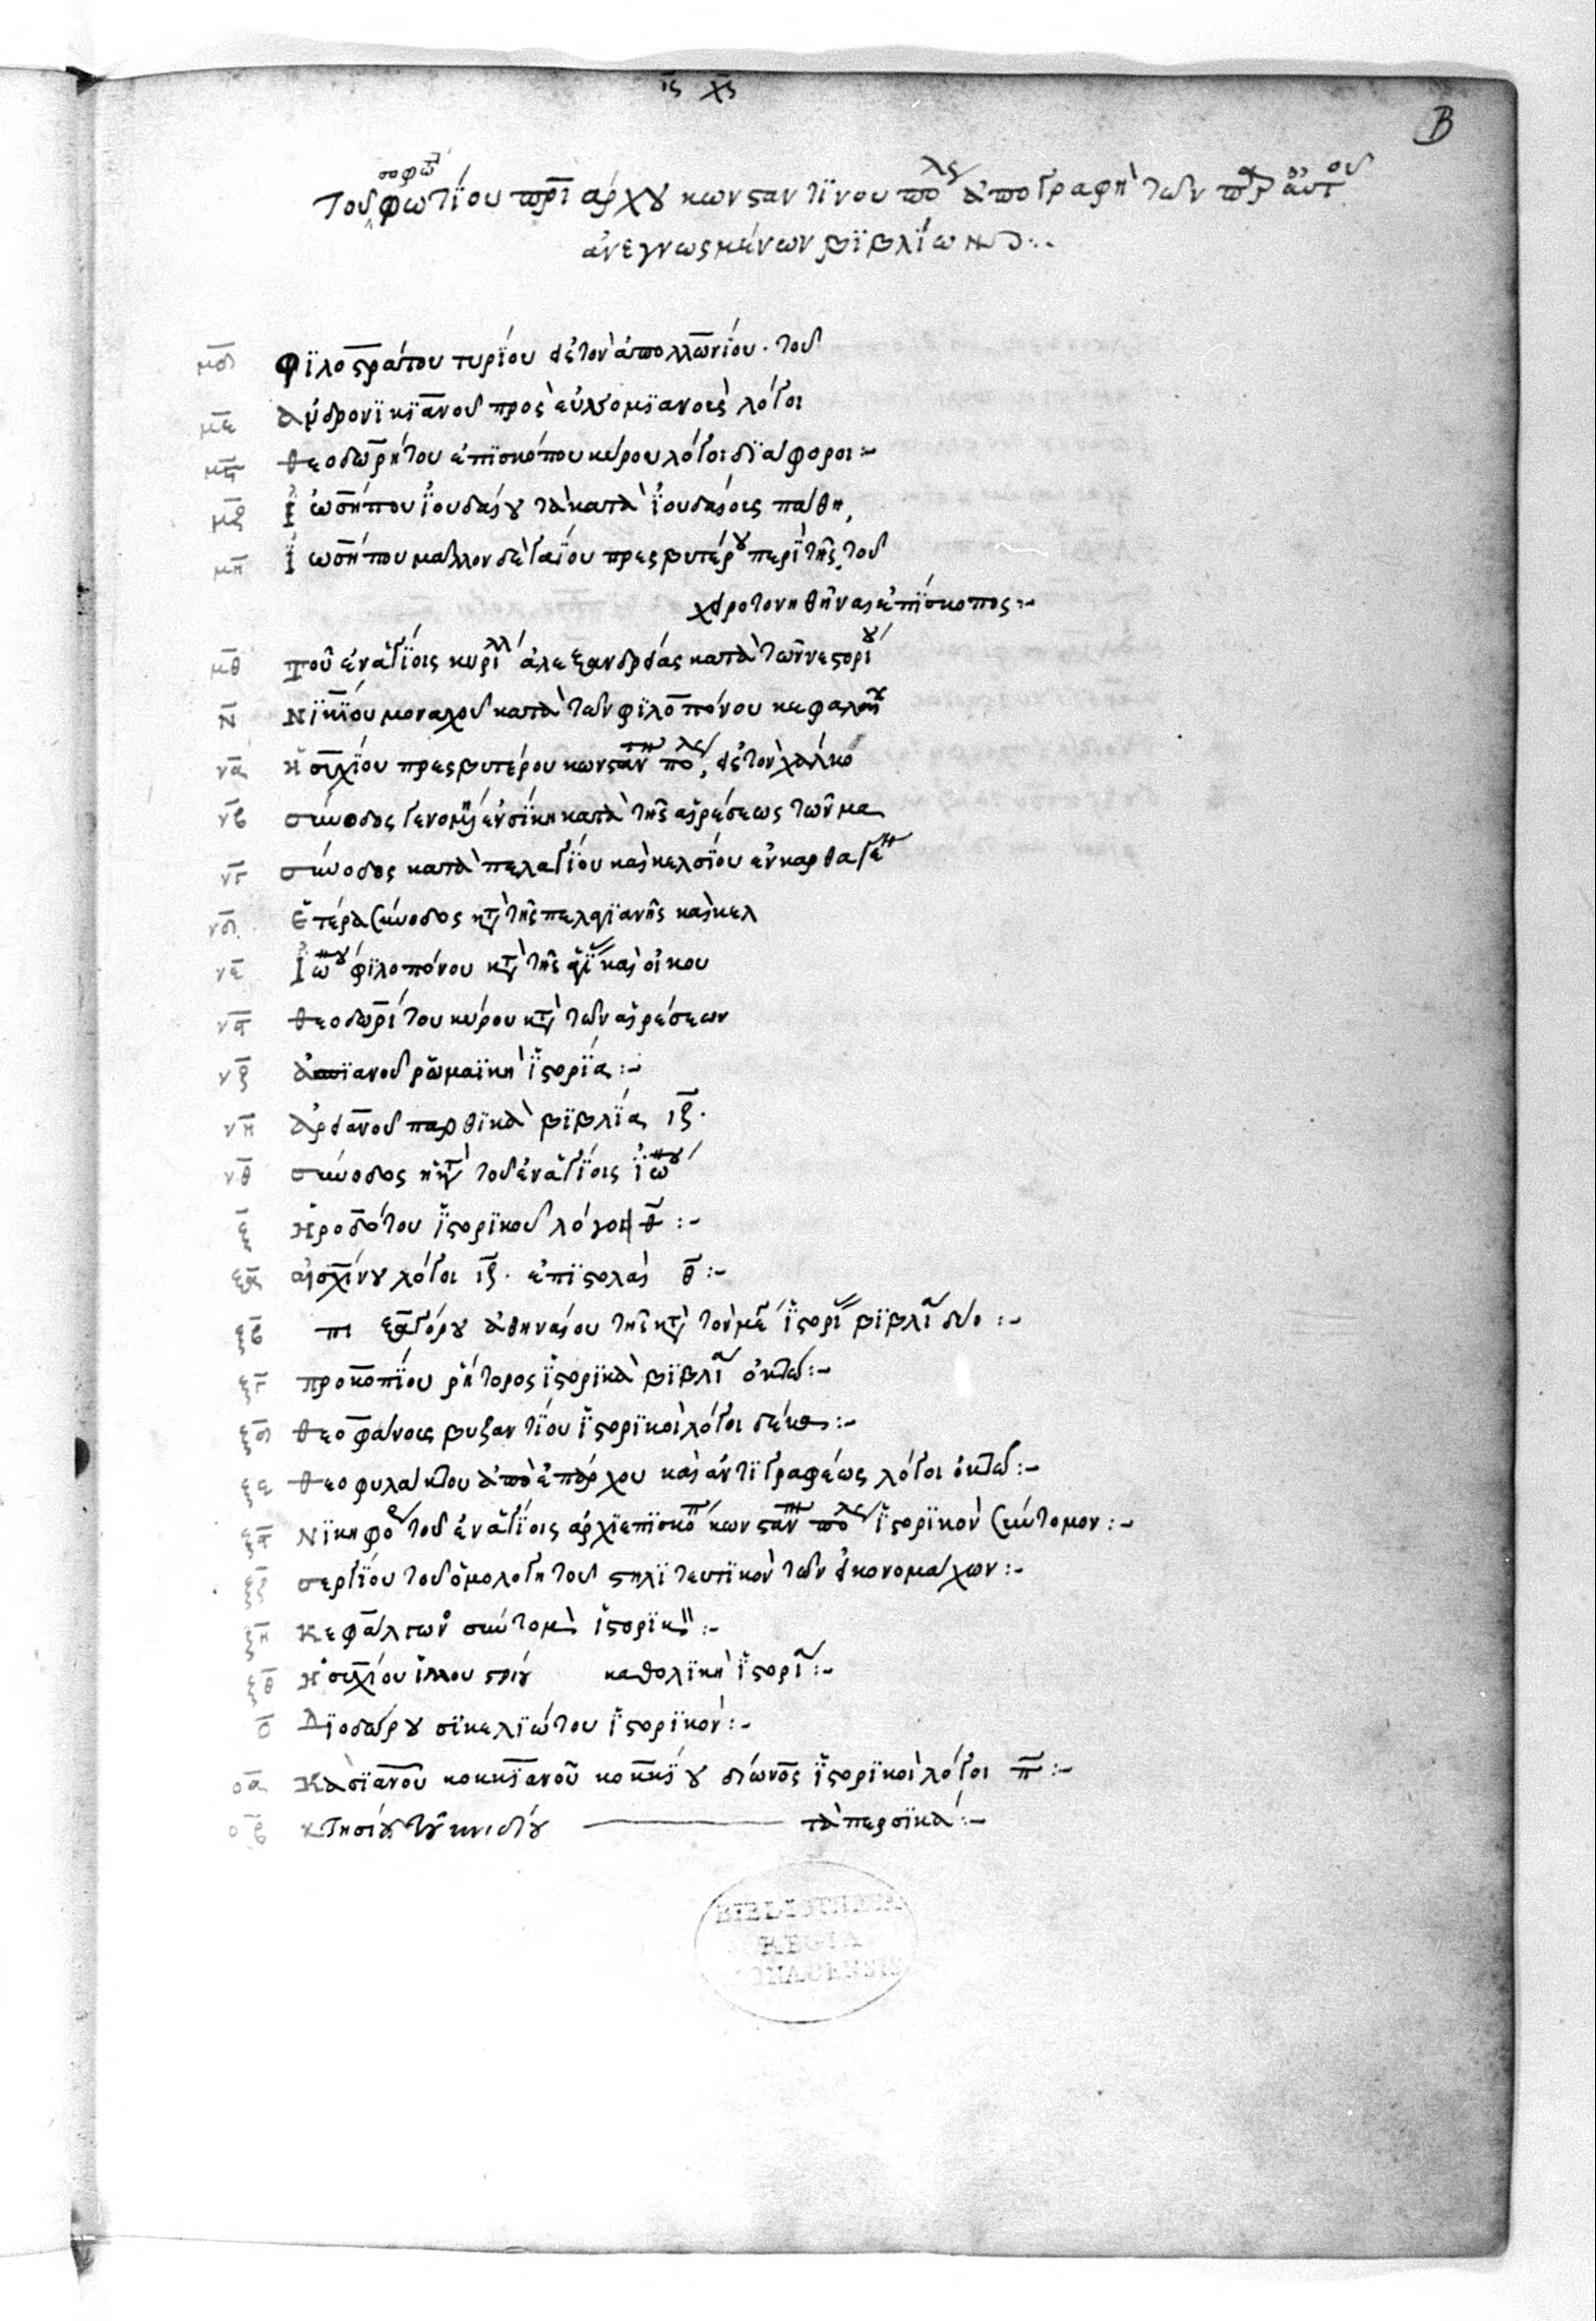 ις χς
B
σοφωτ
Τοῦ φωτίου πρι άρχου κωνσαντίνου πο λς ἀπογραφὴ τῶν παρ αὐτοῦ
ἀνεγνωσμένων βιβλίων :-
μδ φιλοστράτου τυρίου εἰς τὸν ἀπολλωνίου · τοῦ
με ἀνδρονικιανοῦ πρὸς εὐνομιανοὺς λόγοι
μϛ θεοδωρήτου ἐπισκόπου κύρου λόγοι διάφοροι :-
μζ ἰωσήπου ἰουδαίου τὰ κατὰ ἰουδαίους πάθη
μη ἰωσήπου μᾶλλον δὲ γαΐου πρεσβυτέρου περὶ τῆς τοῦ
χειροτονηθῆναι ἐπίσκοπος :-
μθ τοῦ ἐν ἁγίοις κυρίλλ ἀλεξανδρείας κατὰ τῶν νεστορίου
ν νικίου μοναχοῦ κατὰ τῶν φιλοπόνου κεφαλ
να ἡσυχίου πρεσβυτέρου κωνσταν πό λς εἰς τὸν χαλκό
νβ σύνοδος γενομ ἐν σίδη κατὰ τῆς αἱρέσεως τῶν μα
νγ σύνοδος κατὰ πελαγίου καὶ κελσίου ἐν καρθαγέν
νδ ἑτέρα σύνοδος κτ τῆς πελαγιανῆς καὶ κελ
νε ἰω φιλοπόνου κτ τῆς καὶ οἰκου
νϛ θεοδωρίτου κύρου κτ τῶν αἱρέσεων
νζ ἀππιανοῦ ῥωμαϊκὴ ἱστορία :-
νη ἀρειανοῦ παρθικὰ βιβλία ιζ ·
νθ σύνοδος κτ τοῦ ἐν ἁγίοις ἰω
ξ ἡροδότου ἱστορικοῦ λόγοι θ :-
ξα αἰσχίνου λόγοι ιζ · ἐπιστολαὶ θ :-
ξβ πραξαγόρου ἀθηναίου τῆς κτ τὸν μέγ ἱστορί βιβλί δύο :-
ξγ προκοπίου ῥήτορος ἱστορικὰ βιβλί ὀκτώ :-
ξδ θεοφάνους βυζαντίου ἱστορικοὶ λόγοι δέκα :-
ξε θεοφυλάκτου ἀπὸ ἐπάρχου καὶ ἀντιγραφέως λόγοι ὀκτώ :-
ξϛ νικηφό τοῦ ἐν ἁγίοις ἀρχιεπισκόπ κωνσταν πο λς ἱστορικὸν σύντομον :-
ξζ σεργίου τοῦ ὁμολογητοῦ στηλιτευτικὸν τῶν εἰκονομάχων :-
ξη κεφαλίωνος σύντομ ἱστορικ :-
ξθ ἡσυχίου ἰλλουστρίου καθολικὴ ἱστορί :-
ο Διοδώρου σικελιώτου ἱστορικόν :-
οα κασιανοῦ κοκκϊανοῦ κοκκίου δίωνος ἱστορικοὶ λόγοι π :-
οβ κτησίου τοῦ κνιδίου τὰ περσικά :-